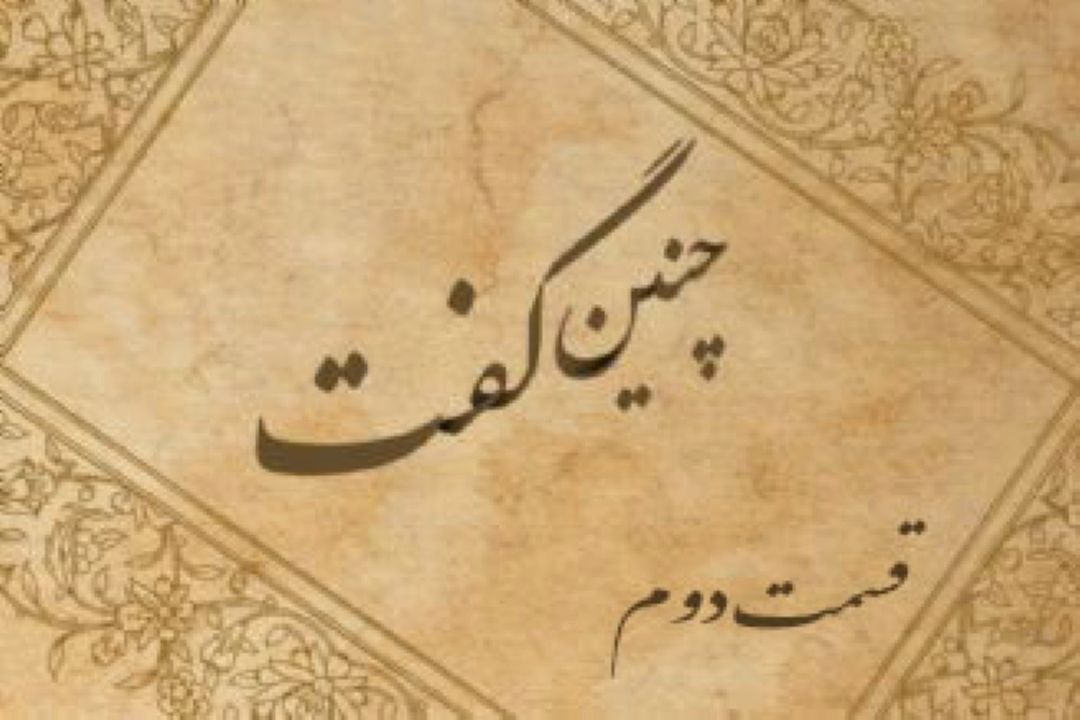 چنین گفت
قسمت دوم